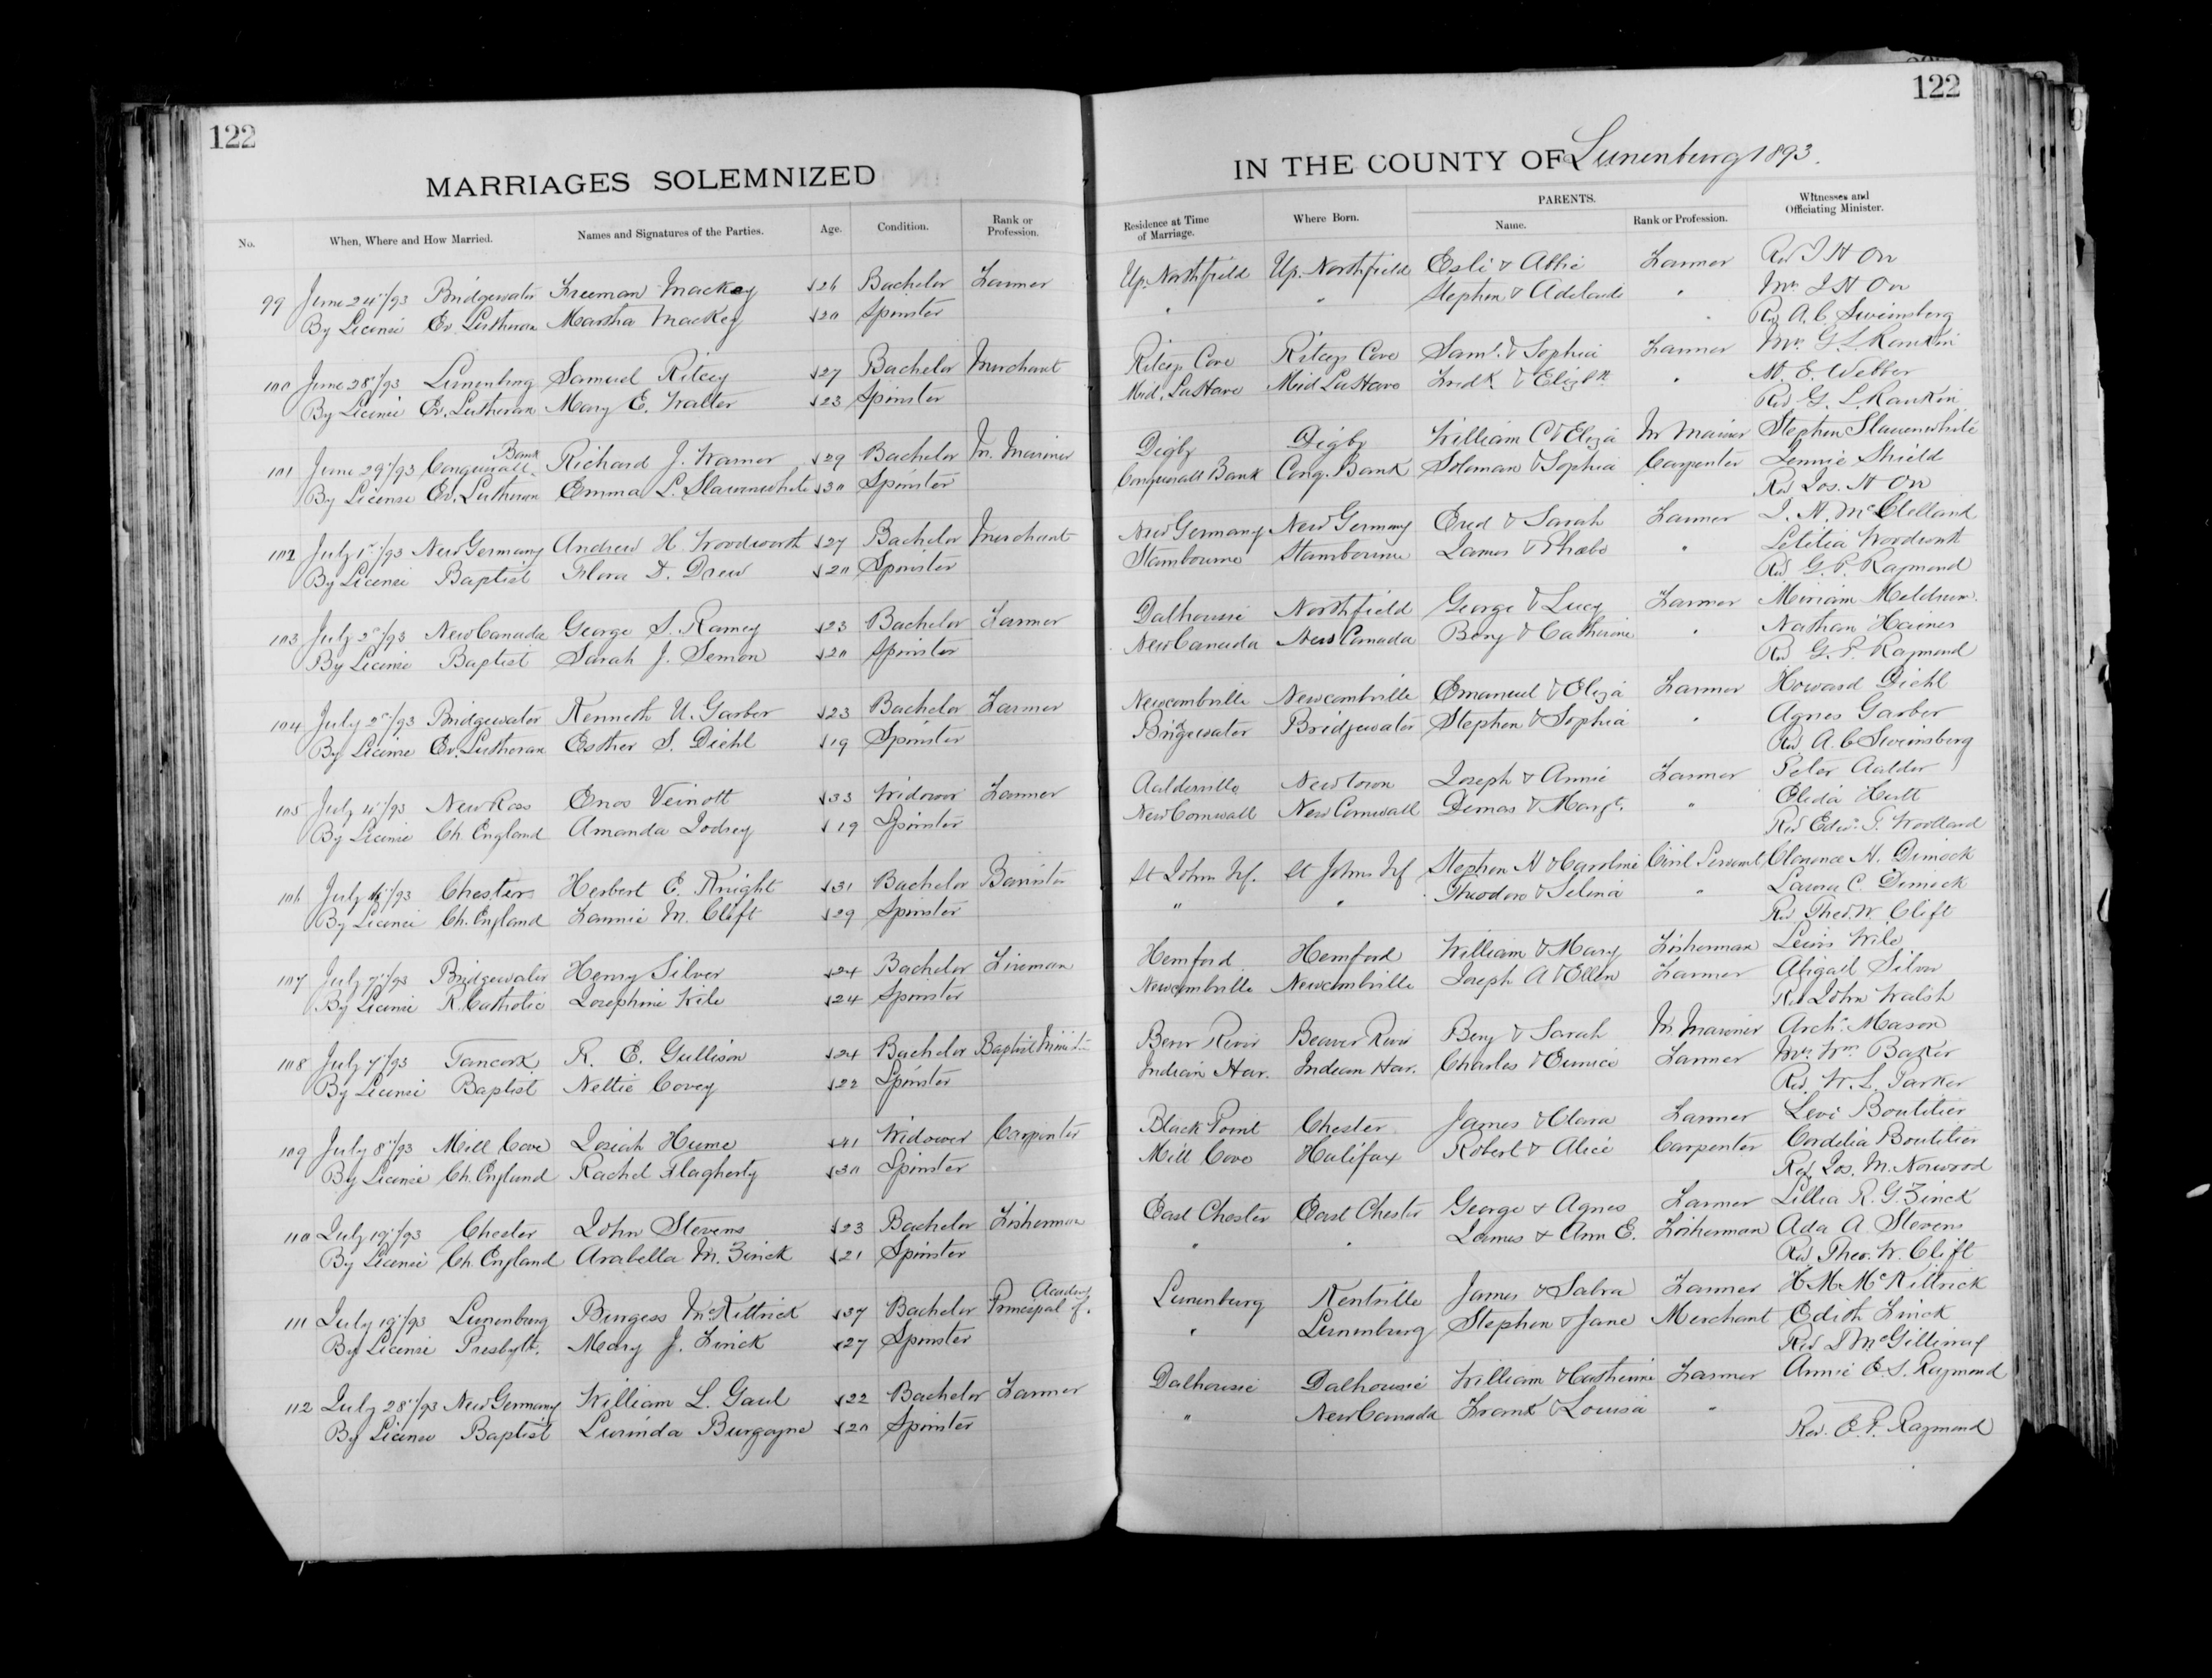 122
MARRIAGES SOLEMNIZED
No. When, Where and How Married. Names and Signatures of the Parties. Age. Condition. Rank or Profession.
99 June 24/93 Bridgewater Freeman Mackay 26 Bachelor Farmer
By License Ev. Lutheran Martha Mackey 20 Spinster
100 June 28/93 Lunenburg Samuel Ritcey 27 Bachelor Merchant
By License Ev. Lutheran Mary E. Walter 23 Spinster
101 June 29/93 Conquerall Bank Richard J. Warner 29 Bachelor M. Mariner
By License Ev. Lutheran Emma L. Slauenwhite 30 Spinster
102 July 1st/93 New Germany Andrew H Woodworth 27 Bachelor Merchant
By License Baptist Flora D. Drew 20 Spinster
103 July 2d/93 New Canada George S. Ramey 23 Bachelor Farmer
By License Baptist Sarah J. Semon 20 Spinster
104 July 2d/93 Bridgewater Kenneth U. Garber 23 Bachelor Farmer
By License Ev. Lutheran Esther S. Diehl 19 Spinster
105 July 4/93 New Ross Enos Veinott 33 Widower Farmer
By License Ch. England Amanda Lodsey 19 Spinster
106 July /93 Chester Herbert E. Knight 31 Bachelor Barrister
By License Ch. England Fannie M. Clift 29 Spinster
107 July 7/93 Bridgewater Henry Silver 24 Bachelor Fireman
By License R. Catholic Josephine Wile 24 Spinster
108 July 7/93 Tancook R. E. Gullison 24 Bachelor Baptist Minister
By License Baptist Nettie Covey 22 Spinster
109 July 8/93 Mill Cove Josiah Hume 41 Widower Carpenter
By License Ch. England Rachel Flagherty 30 Spinster
110 July 19/93 Chester John Stevens 23 Bachelor Fisherman
By License Ch. England Arabella M. Zinck 21 Spinster
111 July 19/93 Lunenburg Burgess McKittrick 37 Bachelor Principal of Academy
By License Presbyt. Mary J. Zinck 27 Spinster
112 July 28/93 New Germany William L. Gaul 22 Bachelor Farmer
By License Baptist Lurinda Burgoyne 20 Spinster
122
IN THE COUNTY OF Lunenburg 1893.
Residence at Time of Marriage. Where Born. PARENTS. Name. Rank or Profession. Witnesses and Officiating Minister.
Up. Northfield Up. Northfield Esli & Abbie Farmer Rev J H Orr
" " Stephen & Adelaide " Mrs J H Orr
Rev A. C Sweinsberg
Ritcey Cove Ritcey Cove Saml. & Sophia Farmer Mrs G. L. Rankin
Mid. LaHave Mid LaHave Fredk & Elizth " M. E. Webber
Rev G. L. Rankin
Digby Digby William C & Eliza M Mariner Stephen Slauenwhite
Conquerall Bank Conq. Bank Soloman & Sophia Carpenter Jennie Shield
Rev Jos. H Orr
New Germany New Germany Ered & Sarah Farmer J. N. McClelland
Stanbourne Stanbourne James & Phoebe " Letitia Woodworth
Rev G. P. Raymond
Dalhousie Northfield George & Lucy Farmer Miriam Meldrum.
New Canada New Canada Benj & Catherine " Nathan Haines
Rev G. P. Raymond
Newcombville Newcombville Emanuel & Eliza Farmer Howard Diehl
Bridgewater Bridgewater Stephen & Sophia " Agnes Garber
Rev A. C Sweinsberg
Aaldersville Newtown Joseph & Annie Farmer Peter Aalder
New Cornwall New Cornwall Demas & Margt. " Elida Hutt
Rev Edw. T. Woollard
St Johns Nf. St Johns Nf Stephen H & Caroline Civil Servant Clarence H. Dimock
" " Theodore & Selina " Laura C. Dimock
Rev Theo. W. Clift
Hemford Hemford William & Mary Fisherman Lewis Wile
Newcombville Newcombville Joseph A & Ellen Farmer Abigail Silver
Rev John Walsh
Bever River Beaver River Benj & Sarah M Mariner Archd. Mason
Indian Har. Indian Har. Charles & Eunice Farmer Mrs Wm Baker
Rev. W. L. Parker
Black Point Chester James & Clara Farmer Levi Boutilier
Mill Cove Halifax Robert & Alice Carpenter Cordelia Boutilier
Rev Jos. M. Norwood
East Chester East Chester George & Agnes Farmer Lillia R. G. Zinck
" " James & Ann E. Fisherman Ada A. Stevens
Rev Theo. W. Clift
Lunenburg Kentville James & Sabra Farmer H M McKittrick
" Lunenburg Stephen & Jane Merchant Edith Zinck
Rev D McGillivray
Dalhousie Dalhousie William & Catherine Farmer Annie E. S. Raymond
" New Canada Frank & Louisa "
Rev. E. P. Raymond